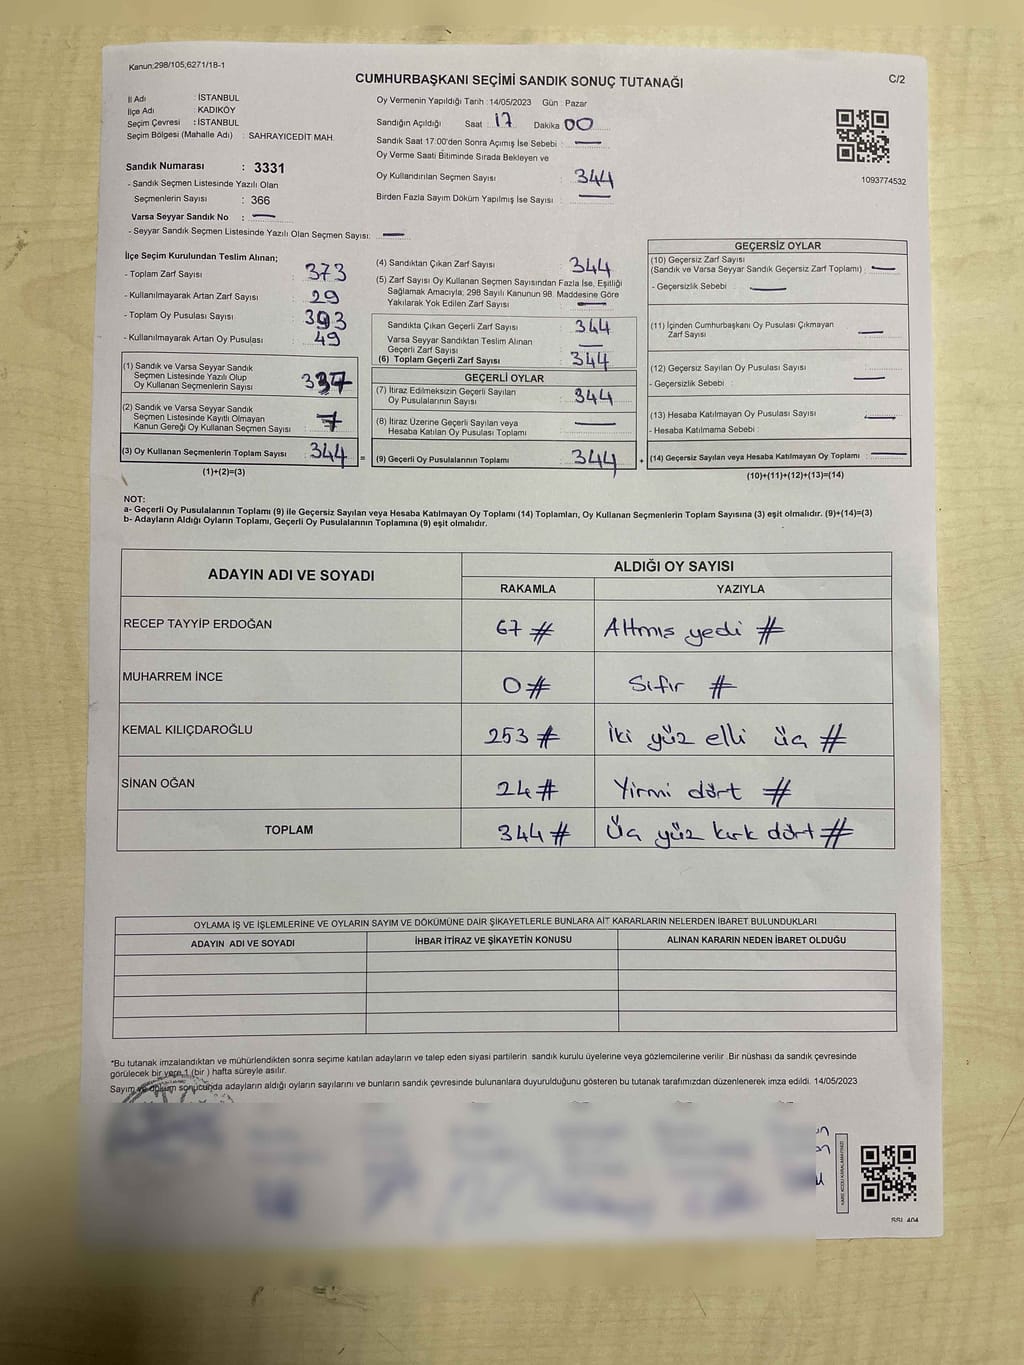 Kanun:298/105,6271/18-1
CUMHURBAŞKANI SEÇİMİ SANDIK SONUÇ TUTANAĞI
C/2
İl Adı : İSTANBUL
İlçe Adı : KADIKÖY
Seçim Çevresi : İSTANBUL
Seçim Bölgesi (Mahalle Adı) : SAHRAYICEDİT MAH.
Sandık Numarası : 3331
- Sandık Seçmen Listesinde Yazılı Olan
Seçmenlerin Sayısı : 366
Varsa Seyyar Sandık No : —
- Seyyar Sandık Seçmen Listesinde Yazılı Olan Seçmen Sayısı: —
Oy Vermenin Yapıldığı Tarih : 14/05/2023 Gün : Pazar
Sandığın Açıldığı Saat : 17 Dakika 00
Sandık Saat 17:00'den Sonra Açımış İse Sebebi : —
Oy Verme Saati Bitiminde Sırada Bekleyen ve
Oy Kullandırılan Seçmen Sayısı : 344
Birden Fazla Sayım Döküm Yapılmış İse Sayısı : —
1093774532
İlçe Seçim Kurulundan Teslim Alınan;
- Toplam Zarf Sayısı : 373
- Kullanılmayarak Artan Zarf Sayısı : 29
- Toplam Oy Pusulası Sayısı : 393
- Kullanılmayarak Artan Oy Pusulası : 49
(1) Sandık ve Varsa Seyyar Sandık
Seçmen Listesinde Yazılı Olup
Oy Kullanan Seçmenlerin Sayısı : 337
(2) Sandık ve Varsa Seyyar Sandık
Seçmen Listesinde Kayıtlı Olmayan
Kanun Gereği Oy Kullanan Seçmen Sayısı : 7
(3) Oy Kullanan Seçmenlerin Toplam Sayısı : 344
(1)+(2)=(3)
(4) Sandıktan Çıkan Zarf Sayısı : 344
(5) Zarf Sayısı Oy Kullanan Seçmen Sayısından Fazla İse, Eşitliği
Sağlamak Amacıyla, 298 Sayılı Kanunun 98. Maddesine Göre
Yakılarak Yok Edilen Zarf Sayısı : —
Sandıkta Çıkan Geçerli Zarf Sayısı : 344
Varsa Seyyar Sandıktan Teslim Alınan
Geçerli Zarf Sayısı : —
(6) Toplam Geçerli Zarf Sayısı : 344
GEÇERLİ OYLAR
(7) İtiraz Edilmeksizin Geçerli Sayılan
Oy Pusulalarının Sayısı : 344
(8) İtiraz Üzerine Geçerli Sayılan veya
Hesaba Katılan Oy Pusulası Toplamı : —
= (9) Geçerli Oy Pusulalarının Toplamı : 344 +
GEÇERSİZ OYLAR
(10) Geçersiz Zarf Sayısı
(Sandık ve Varsa Seyyar Sandık Geçersiz Zarf Toplamı) : —
- Geçersizlik Sebebi : —
(11) İçinden Cumhurbaşkanı Oy Pusulası Çıkmayan
Zarf Sayısı : —
(12) Geçersiz Sayılan Oy Pusulası Sayısı :
- Geçersizlik Sebebi : —
(13) Hesaba Katılmayan Oy Pusulası Sayısı : —
- Hesaba Katılmama Sebebi :
(14) Geçersiz Sayılan veya Hesaba Katılmayan Oy Toplamı : —
(10)+(11)+(12)+(13)=(14)
NOT:
a- Geçerli Oy Pusulalarının Toplamı (9) ile Geçersiz Sayılan veya Hesaba Katılmayan Oy Toplamı (14) Toplamları, Oy Kullanan Seçmenlerin Toplam Sayısına (3) eşit olmalıdır. (9)+(14)=(3)
b- Adayların Aldığı Oyların Toplamı, Geçerli Oy Pusulalarının Toplamına (9) eşit olmalıdır.
ADAYIN ADI VE SOYADI
ALDIĞI OY SAYISI
RAKAMLA YAZIYLA
RECEP TAYYİP ERDOĞAN 67 # Altmış yedi #
MUHARREM İNCE 0 # Sıfır #
KEMAL KILIÇDAROĞLU 253 # İki yüz elli üç #
SİNAN OĞAN 24 # Yirmi dört #
TOPLAM 344 # Üç yüz kırk dört #
OYLAMA İŞ VE İŞLEMLERİNE VE OYLARIN SAYIM VE DÖKÜMÜNE DAİR ŞİKAYETLERLE BUNLARA AİT KARARLARIN NELERDEN İBARET BULUNDUKLARI
ADAYIN ADI VE SOYADI İHBAR İTİRAZ VE ŞİKAYETİN KONUSU ALINAN KARARIN NEDEN İBARET OLDUĞU
*Bu tutanak imzalandıktan ve mühürlendikten sonra seçime katılan adayların ve talep eden siyasi partilerin sandık kurulu üyelerine veya gözlemcilerine verilir .Bir nüshası da sandık çevresinde
görülecek bir yere 1 (bir ) hafta süreyle asılır.
Sayım ve döküm sonucunda adayların aldığı oyların sayılarını ve bunların sandık çevresinde bulunanlara duyurulduğunu gösteren bu tutanak tarafımızdan düzenlenerek imza edildi. 14/05/2023